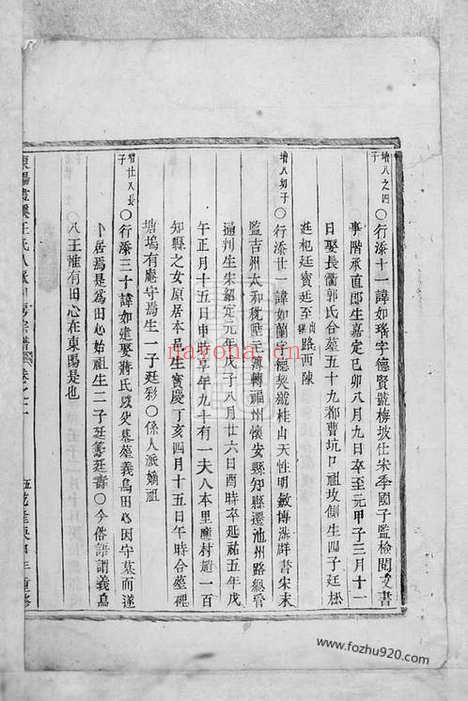 增八之四子
○行添十一諱如瑤字德賢號梅坡仕宋季國子監檢閱文書
事階承直郎生嘉定己卯八月九日卒至元甲子三月十一
日娶長衢郭氏合墓五十九都曹坑口祖坟側生四子廷松
廷杞廷賓廷至 路西陳
增八幼子
○行添廿一諱如蘭字德契號桂山天性明敏博涉群書宋末
監吉州太和稅壁元簿轉福州懷安縣知縣遷池州路總管
通判生宋紹定元年戊子八月廿六日酉時卒延祐五年戊
午正月十五日申時享年九十有一夫八本里塵村趙一百
知縣之女原居本邑生寶慶丁亥四月十五日午時合墓碑
塘塢有庵守焉生一子廷彩○係人派嫡祖
○行添三十諱如建娶蔣氏以父墓墓義烏田心因守墓而遂
卜居焉是為田心始祖生二子廷籌廷壽○今俗諺謂義烏
八王惟有田心在東陽是也
nayona.cn
www.fozhu920.com